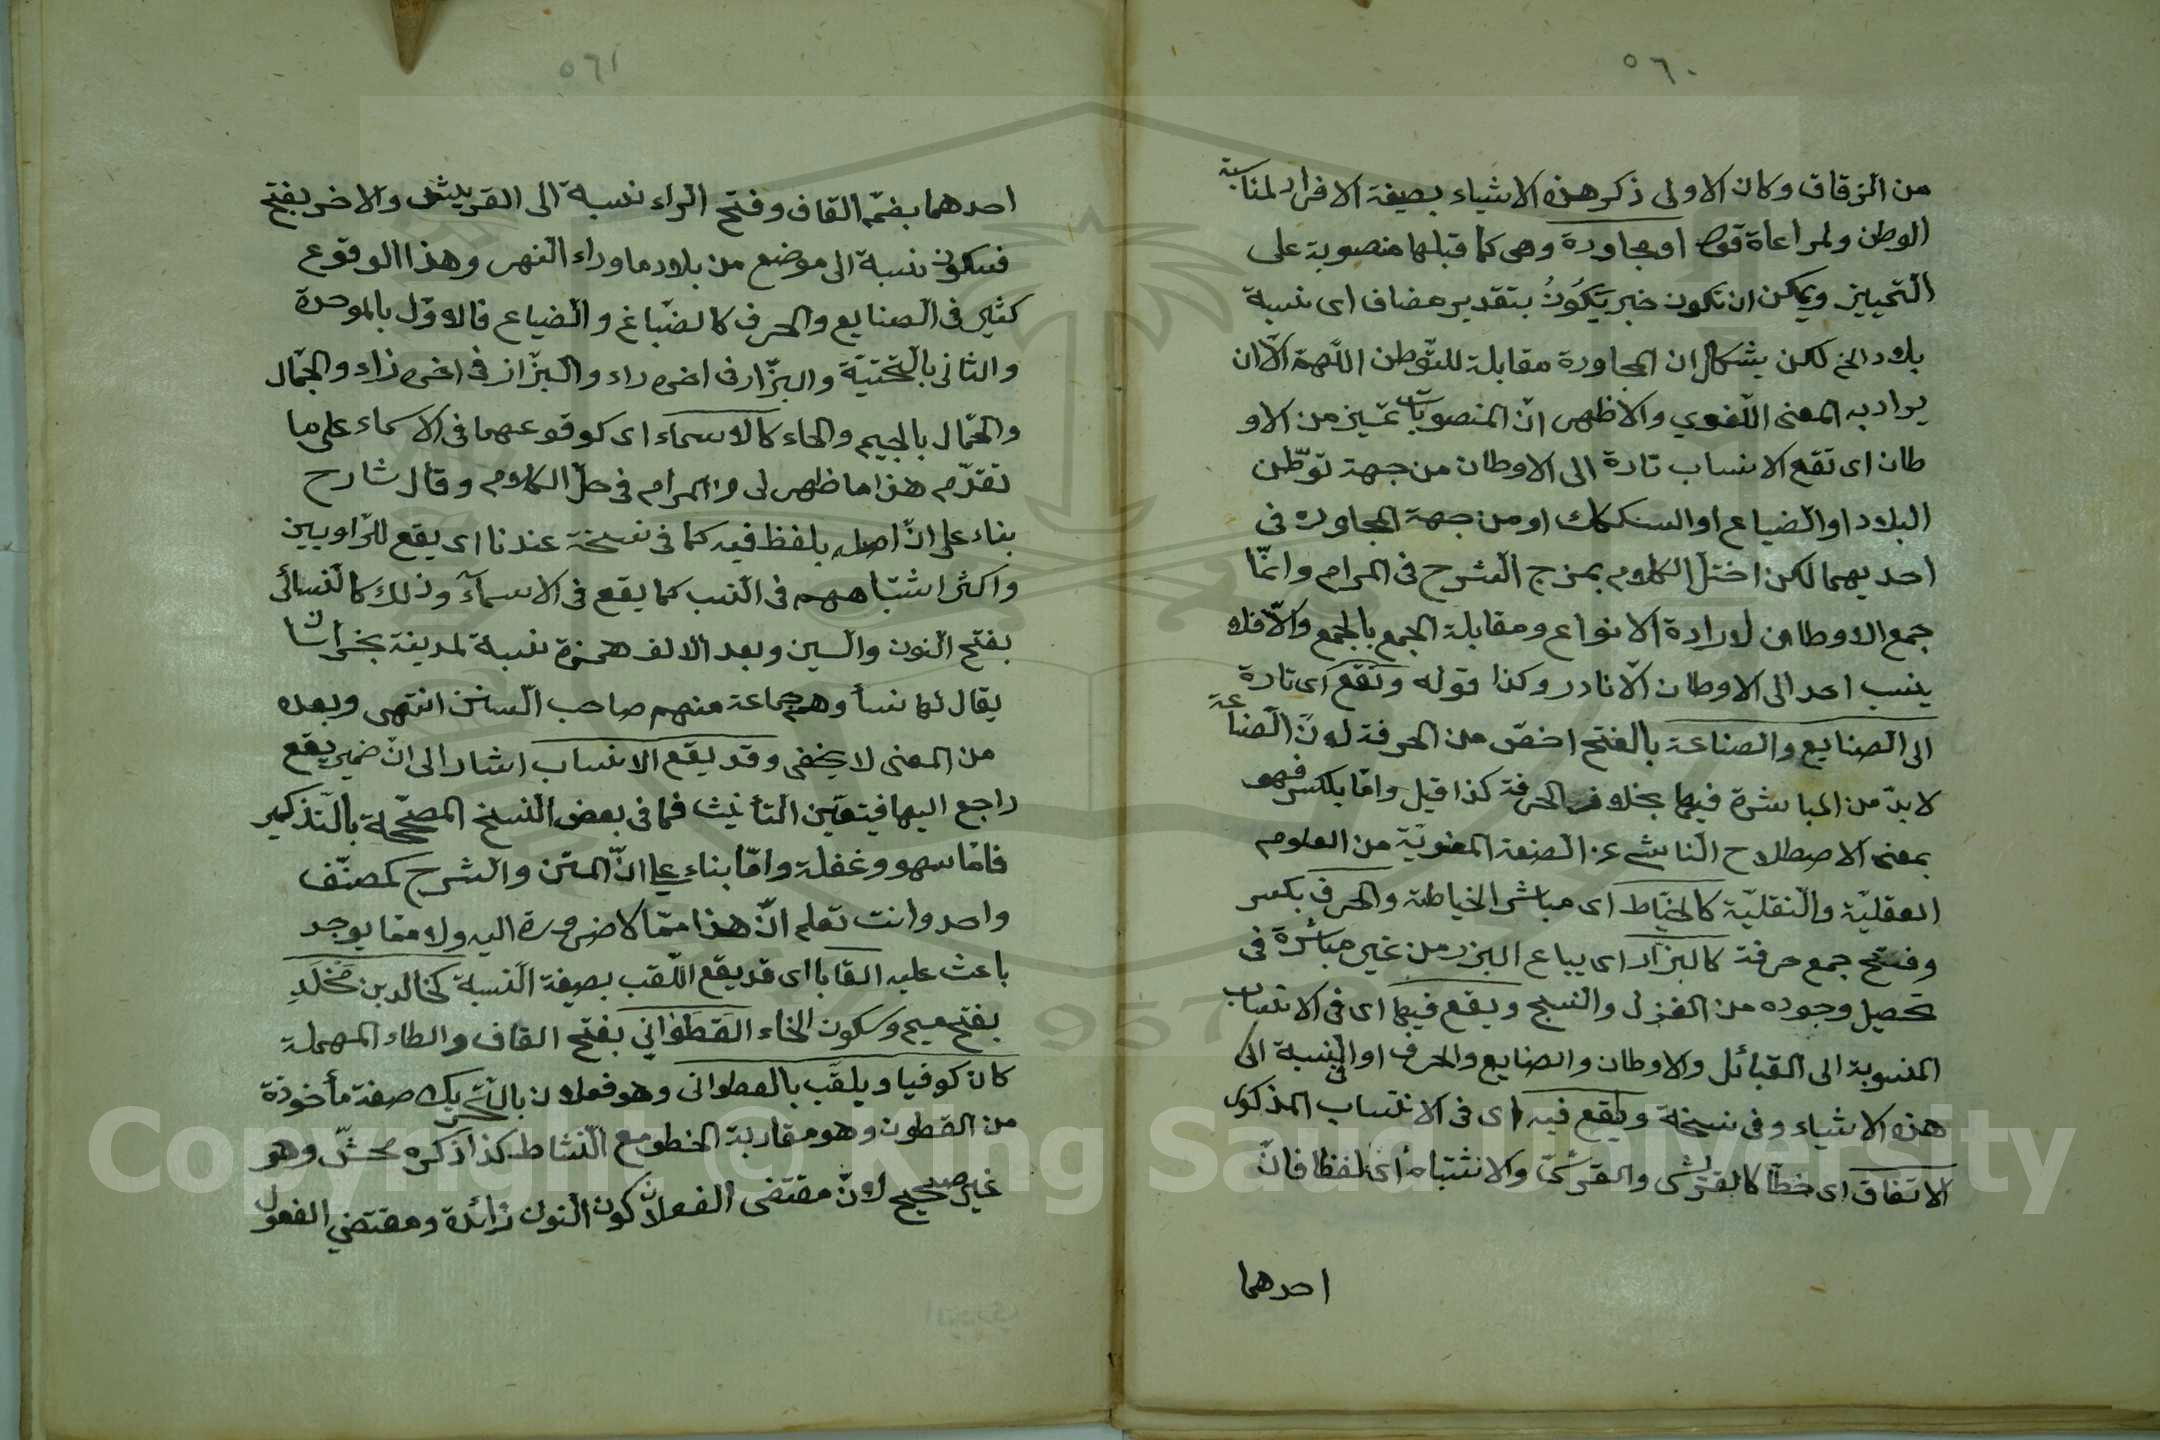 ٥٦٠
من الزقاق وكان الاولى ذكر هذه الاشياء بصيغة الافراد لمناسبة
الوطن ولمراعاة قوله او مجاورة وهى كما قبلها منصوبة على
التمييز ويمكن ان تكون خبر يَكُونُ بتقدير مضاف اى نسبة
بلاد الخ لكن يشكل ان المجاورة مقابلة للتوطن اللّهمّ الّا ان
يراد به المعنى اللّغوي والاظهر انّ المنصوبات تمييز من الاو
طان اى تقع الانساب تارة الى الاوطان من جهة توطّن
البلاد او الضياع او السكك او من جهة المجاوره فى
احديهما لكن اختل الكلام بمزج الشرح فى المرام وانّما
جمع الاوطان لارادة الانواع ومقابلة الجمع بالجمع والّا فلا
ينسب احد الى الاوطان الّا نادر وكذا قوله وتقع اى تارة
الى الصنايع والصناعة بالفتح اخصّ من الحرفة لانّ الصناعة
لابدّ من المباشرة فيها بخلاف الحرفة كذا قيل وامّا بالكسر فهو
بمعنى الاصطلاح الناشى عن الصنعة المعنويّة من العلوم
العقليّة والنقليّة كالخيّاط اى مباشر الخياطة والحرف بكسر
وفتح جمع حرفة كالبزّاز اى بياع البزر من غير مباشرة فى
تحصيل وجوده من الغزل والنسج ويقع فيها اى فى الانتساب
المنسوبة الى القبائل والاوطان والصنايع والحرف او النسبة الى
هذه الاشياء وفى نسخة ويقع فيه اى فى الانتساب المذكور
الاتفاق اى خطّا كالقرشى والقرشىّ والاشتباه اى لفظا فانّ
احدهما
٥٦١
احدهما بضمّ القاف وفتح الراء نسبة الى القريش والاخر بفتح
فسكون نسبة الى موضع من بلاد ماوراء النهر وهذا الوقوع
كثير فى الصنايع والحرف كالصّباغ والضياع فالاوّل بالموحدة
والثانى بالتحتيّة والبزّار فى اخره راء والبزّاز فى اخره زاء والجمّال
والحمّال بالجيم والحاء كالاسماء اى كوقوعهما فى الاسماء على ما
تقدّم هذا ما ظهر لى والمرام فى حلّ الكلام وقال شارح
بناء على انّ اصله بلفظ فيه كما فى نسخة عندنا اى يقع للرّاويين
واكثر اشتباههم فى النسب كما يقع فى الاسمآء وذلك كالنسائى
بفتح النون والسين وبعد الالف همزة نسبة لمدينة بخراسان
يقال لها نسأ وهم جماعة منهم صاحب السنن انتهى وبعده
من المعنى لا يخفى وقد يقع الانساب اشار الى انّ ضمير يقع
راجع اليها فيتعيّن التأنيث فما فى بعض النسخ المصحّحة بالتذكير
فامّا سهو وغفلة وامّا بناء على انّ المتن والشرح كمصنّف
واحد وانت تعلم انّ هذا ممّا لا ضرورة اليه ولا ممّا يوجد
باعث عليه القابا اى قد يقع اللّقب بصيغة النسبة كخالد بن مَخْلَدٍ
بفتح ميم وسكون الخاء القَطَوَاني بفتح القاف والطاء المهملة
كان كوفيا ويلقّب بالقطوانى وهو فعلان بالتحريك صفة مأخوذة
من القطون وهو مقاربة الخطو مع النشاط كذا ذكره محشّ وهو
غير صحيح لانّ مقتضى الفعلان كون النون زائدة ومقتضي الفعول
Copyright © King Saud University
1957